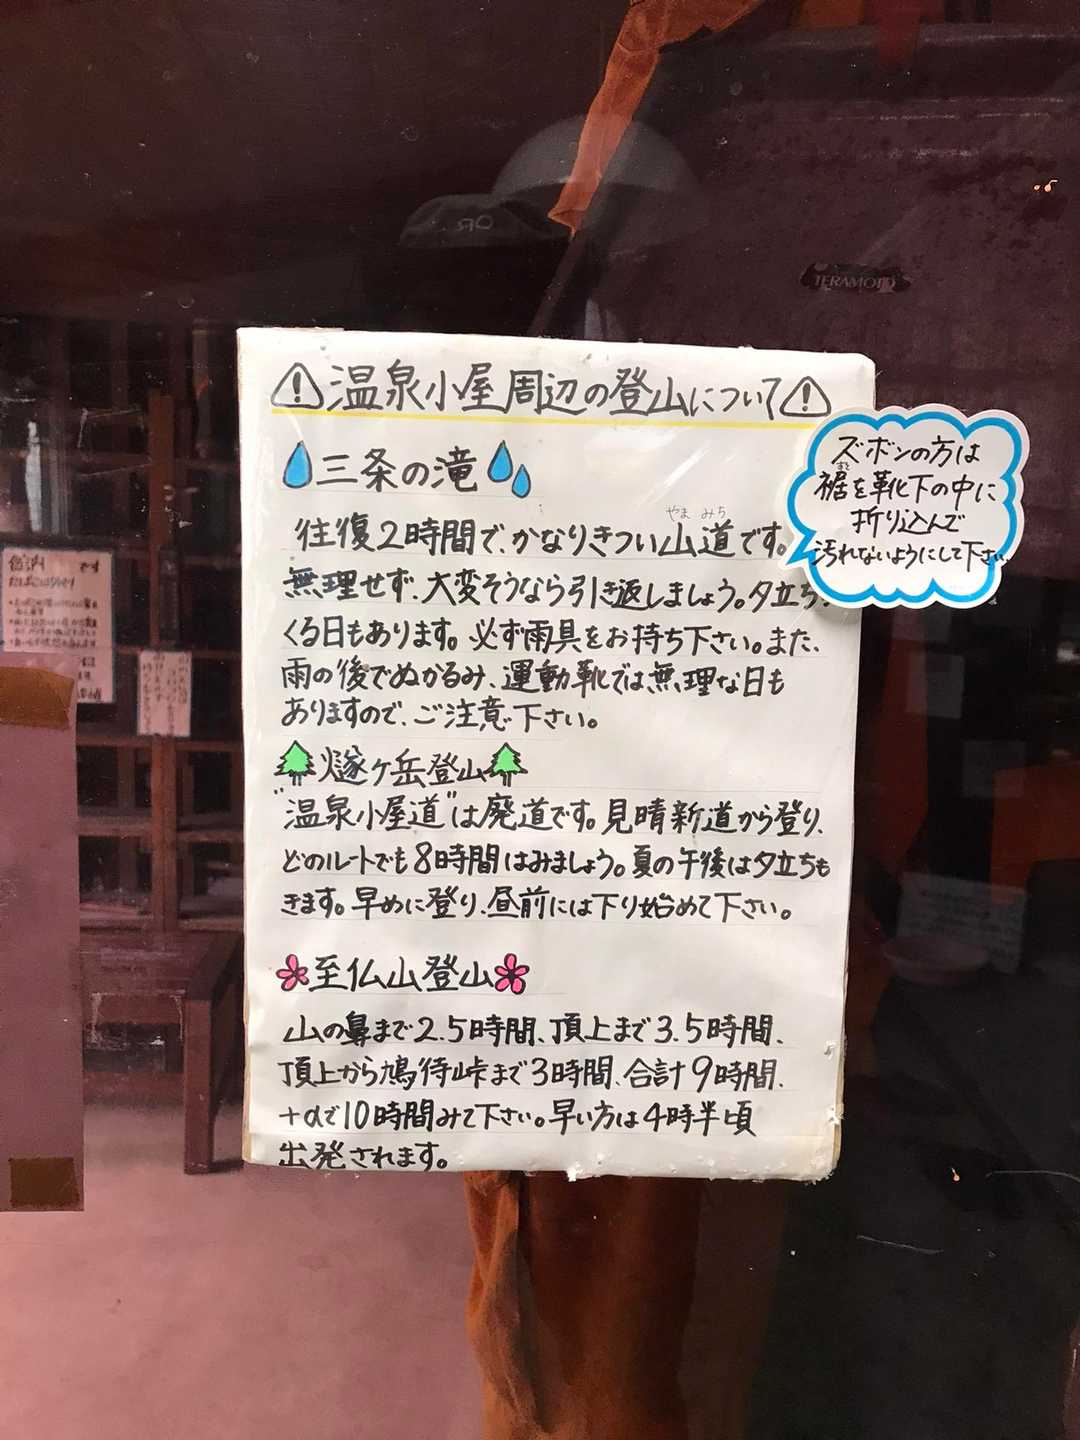 ⚠温泉小屋周辺の登山について⚠
三条の滝
やま みち
往復2時間で、かなりきつい山道です。
無理せず、大変そうなら引き返しましょう。夕立も
くる日もあります。必ず雨具をお持ち下さい。また、
雨の後でぬかるみ、運動靴では無理な日も
ありますので、ご注意下さい。
燧ヶ岳登山
"温泉小屋道"は廃道です。見晴新道から登り、
どのルートでも8時間はみましょう。夏の午後は夕立も
きます。早めに登り、昼前には下り始めて下さい。
至仏山登山
山の鼻まで2.5時間、頂上まで3.5時間、
頂上から鳩待峠まで3時間、合計9時間、
+αで10時間みて下さい。早い方は4時半頃
出発されます。
ズボンの方は
すそ
裾を靴下の中に
折り込んで
汚れないようにして下さい
TERAMOTO